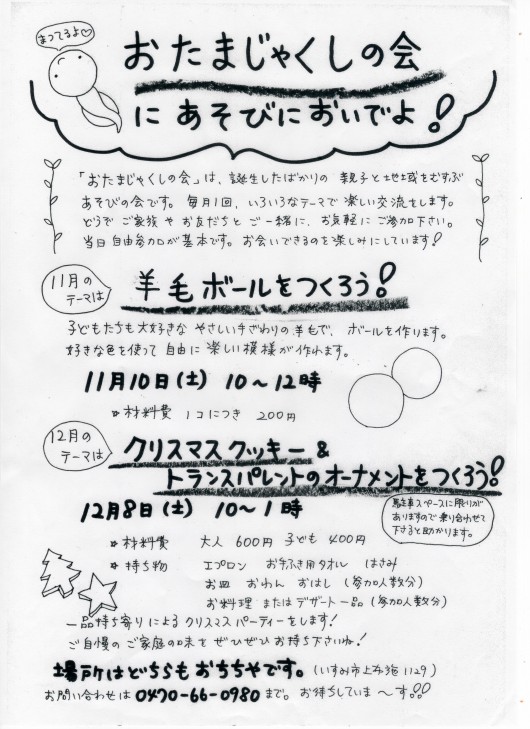 まってるよ♡
おたまじゃくしの会
にあそびにおいでよ!
「おたまじゃくしの会」は、誕生したばかりの 親子と地域をむすぶ
あそびの会です。毎月1回、いろいろなテーマで楽しい交流をします。
どうぞ ご家族や お友だちと ご一緒に、お気軽に ご参加下さい。
当日自由参加が基本です。お会いできるのを楽しみにしています!
11月の
テーマは
羊毛ボールをつくろう!
子どもたちも大好きな やさしい手ざわりの羊毛で、ボールを作ります。
好きな色を使って自由に楽しい模様が作れます。
11月10日(土) 10〜12時
☆材料費 1コにつき 200円
12月の
テーマは
クリスマスクッキー&
トランスパレントのオーナメントをつくろう!
12月8日(土) 10〜1時
駐車スペースに限りが
ありますので乗り合わせて
下さると助かります。
☆ 材料費 大人 600円 子ども 400円
☆ 持ち物 エプロン お手ふき用タオル はさみ
お皿 おわん おはし (参加人数分)
お料理 またはデザート一品(参加人数分)
一品持ち寄りによる クリスマスパーティーをします!
ご自慢の ご家庭の味を ぜひぜひお持ち下さいね!
場所はどちらもおちちやです。(いすみ市上布施1129)
お問い合わせは 0470-66-0980 まで。お待ちしていま〜す!!